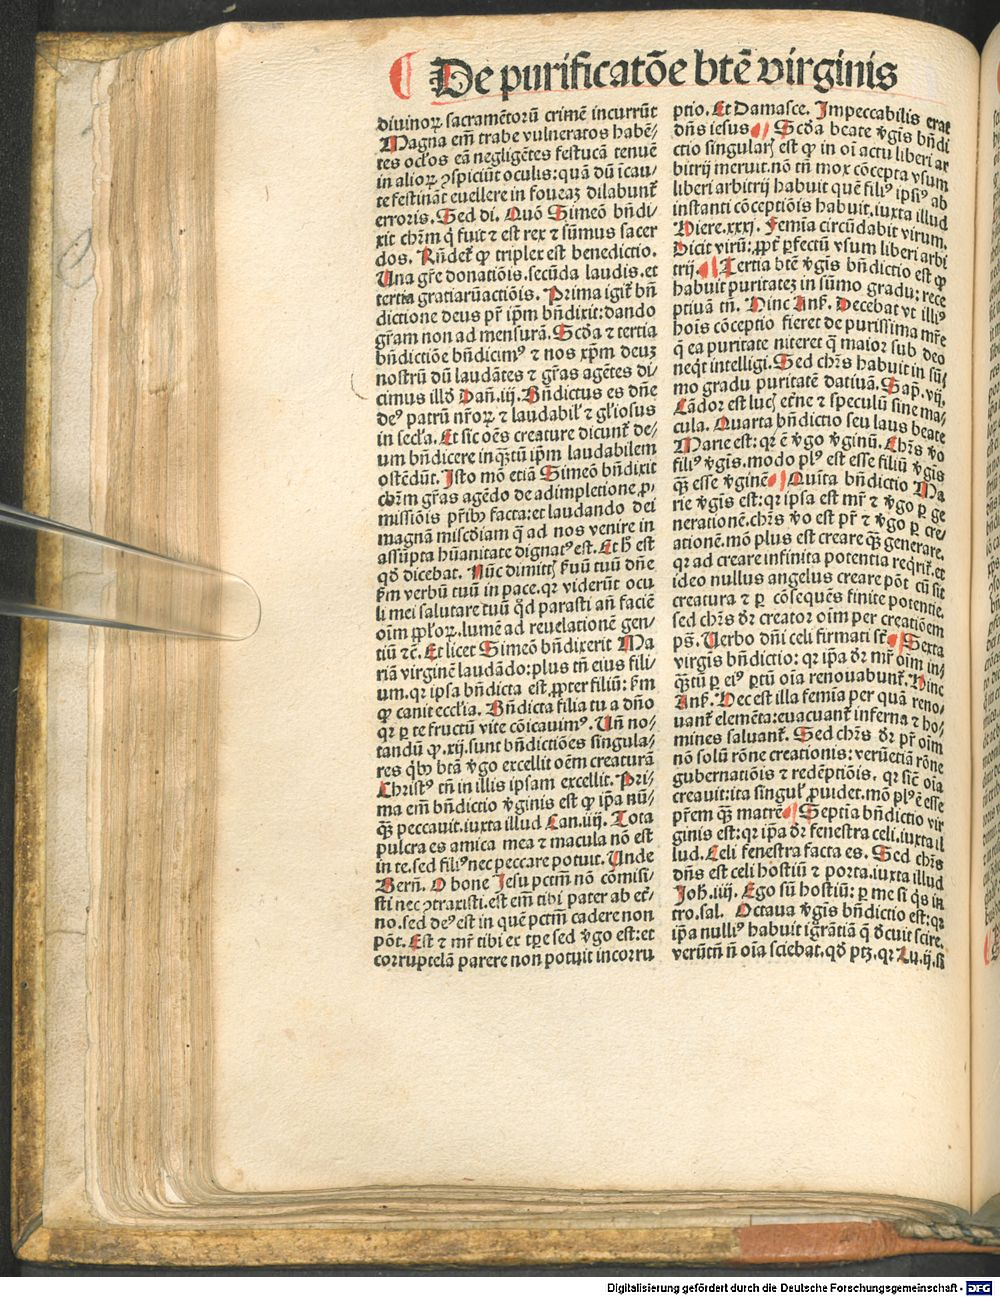 De purificatōe btē virginis
diuinoꝝ sacramētorū crimē incurrūt
Magna em̄ trabe vulneratos habē⸗
tes ocl'os eā negligētes festucā tenuē
in alioꝝ ꝯspiciūt oculis: quā dū īcau⸗
te festināt euellere in foueaꝫ dilabunt̄
erroris. Sed di. Quō Simeō bn̄di⸗
xit chr̄m q̄ fuit ⁊ est rex ⁊ sūmus sacer
dos. Rn̄det̄ ꝙ triplex est benedictio.
Una gr̄e donatiōis. secūda laudis. et
tertia gratiarūactiōis. Prima igit̄ bn̄
dictione deus pr̄ ip̄m bn̄dixit: dando
gr̄am non ad mensurā. Scḋa ⁊ tertia
bn̄dictiōe bn̄dicimꝰ ⁊ nos xp̄m deuꝫ
nostrū dū laudātes ⁊ gr̄as agētes di
cimus illḋ Dan̄. iij. Bn̄dictus es dn̄e
deꝰ patrū nr̄oꝝ ⁊ laudabil' ⁊ gl'iosus
in secl'a. Et sic oēs creature dicunt̄ de⸗
um bn̄dicere in qꝫtū ip̄m laudabilem
ostēdūt. Isto mō etiā Simeō bn̄dixit
chr̄m gr̄as agēdo de adimpletione ꝓ⸗
missiōis pr̄ibꝫ facta: et laudando dei
magnā misc̄diam q̄ ad nos venire in
assūpta hūanitate dignatꝰ est. Et h̄ est
qḋ dicebat. Nūc dimittꝭ ẜuū tuū dn̄e
ẜm verbū tuū in pace. qꝛ viderūt ocu
li mei salutare tuū qḋ parasti an̄ faciē
oīm ppl'oꝝ. lumē ad reuelationē gen⸗
tiū ⁊c̄. Et licet Simeō bn̄dixerit Ma
riā virginē laudādo: plus tn̄ eius fili⸗
um. qꝛ ipsa bn̄dicta est ꝓpter filiū: ẜm
ꝙ canit eccl'ia. Bn̄dicta filia tu a dn̄o
qꝛ ꝑ te fructū vite cōicauimꝰ. Un̄ no⸗
tandū ꝙ. xij. sunt bn̄dictiōes singula⸗
res qḃꝫ btā v̄go excellit oēm creaturā
Christꝰ tn̄ in illis ipsam excellit. Pri⸗
ma em̄ bn̄dictio v̄ginis est ꝙ ip̄a nū⸗
qꝫ peccauit. iuxta illud Can. iiij. Tota
pulcra es amica mea ⁊ macula nō est
in te. sed filiꝰ nec peccare potuit. Unde
Bern̄. O bone Jesu pctm̄ nō cōmisi⸗
sti nec ꝯtraxisti. est em̄ tibi pater ab et̄⸗
no. sed deꝰ est in quē pctm̄ cadere non
pōt. Est ⁊ mr̄ tibi ex tꝑe sed v̄go est: et
corruptelā parere non potuit incorru
ptio. Et Damasce. Impeccabilis erat
dn̄s iesus Scḋa beate v̄gīs bn̄di
ctio singularꝭ est ꝙ in oī actu liberi ar
bitrij meruit. nō tn̄ mox cōcepta vsum
liberi arbitrij habuit quē filiꝰ ipsiꝰ ab
instanti cōceptiōis habuit. iuxta illud
Hiere. xxxj. Femīa circūdabit virum.
Dicit virū: ꝓpt̄ ꝑfectū vsum liberi arbi
trij. Tertia btē v̄gīs bn̄dictio est ꝙ
habuit puritateꝫ in sūmo gradu: rece
ptiuā tn̄. Hinc Ans̄. Decebat vt illiꝰ
hoīs cōceptio fieret de purissima mr̄e
q̄ ea puritate niteret q̄ maior sub deo
neqͥt intelligi. Sed chr̄s habuit in sū⸗
mo gradu puritatē datiuā. Sap̄. vij.
Cādor est lucꝭ et̄ne ⁊ speculū sine ma⸗
cula. Quarta bn̄dictio seu laus beate
Marie est: qꝛ ē v̄go v̄ginū. Chr̄s v̄o
filiꝰ v̄gīs. modo plꝰ est esse filiū v̄gīs
qꝫ esse v̄ginē Quīta bn̄dictio Ma
rie v̄gīs est: qꝛ ipsa est mr̄ ⁊ v̄go ꝑ ge
nerationē. chr̄s v̄o est pr̄ ⁊ v̄go ꝑ cre⸗
ationē. mō plus est creare qꝫ generare.
qꝛ ad creare infinita potentia reqͥrit̄. et
ideo nullus angelus creare pōt cū sit
creatura ⁊ ꝑ cōsequēs finite potentie.
sed chr̄s dr̄ creator oīm per creatiōem
ps̄. Uerbo dn̄i celi firmati st̄ Sexta
virgīs bn̄dictio: qꝛ ip̄a dr̄ mr̄ oīm in⸗
qꝫtū ꝑ eiꝰ ꝑtū oīa renouabunt̄. Hinc
Ans̄. Hec est illa femīa per quā reno⸗
uant̄ elemēta: euacuant̄ inferna ⁊ ho⸗
mines saluant̄. Sed chr̄s dr̄ pr̄ oīm
nō solū rōne creationis: verūetiā rōne
gubernatiōis ⁊ redēptiōis. qꝛ sic̄ oīa
creauit: ita singul' ꝓuidet. mō plꝰ ē esse
pr̄em qꝫ matrē Septīa bn̄dictio vir
ginis est: qꝛ ip̄a dr̄ fenestra celi. iuxta il
lud. Celi fenestra facta es. Sed chr̄s
dn̄s est celi hostiū ⁊ porta. iuxta illud
Joh̄. iiij. Ego sū hostiū: ꝑ me si qͥs in
tro. sal. Octaua v̄gīs bn̄dictio est: qꝛ
ip̄a nulliꝰ habuit ign̄rātiā q̄ ḋcuit scire.
verūtn̄ n̄ oīa sciebat. qḋ ptꝫ. qꝛ Lu. ij. si
Digitalisierung gefördert durch die Deutsche Forschungsgemeinschaft - DFG